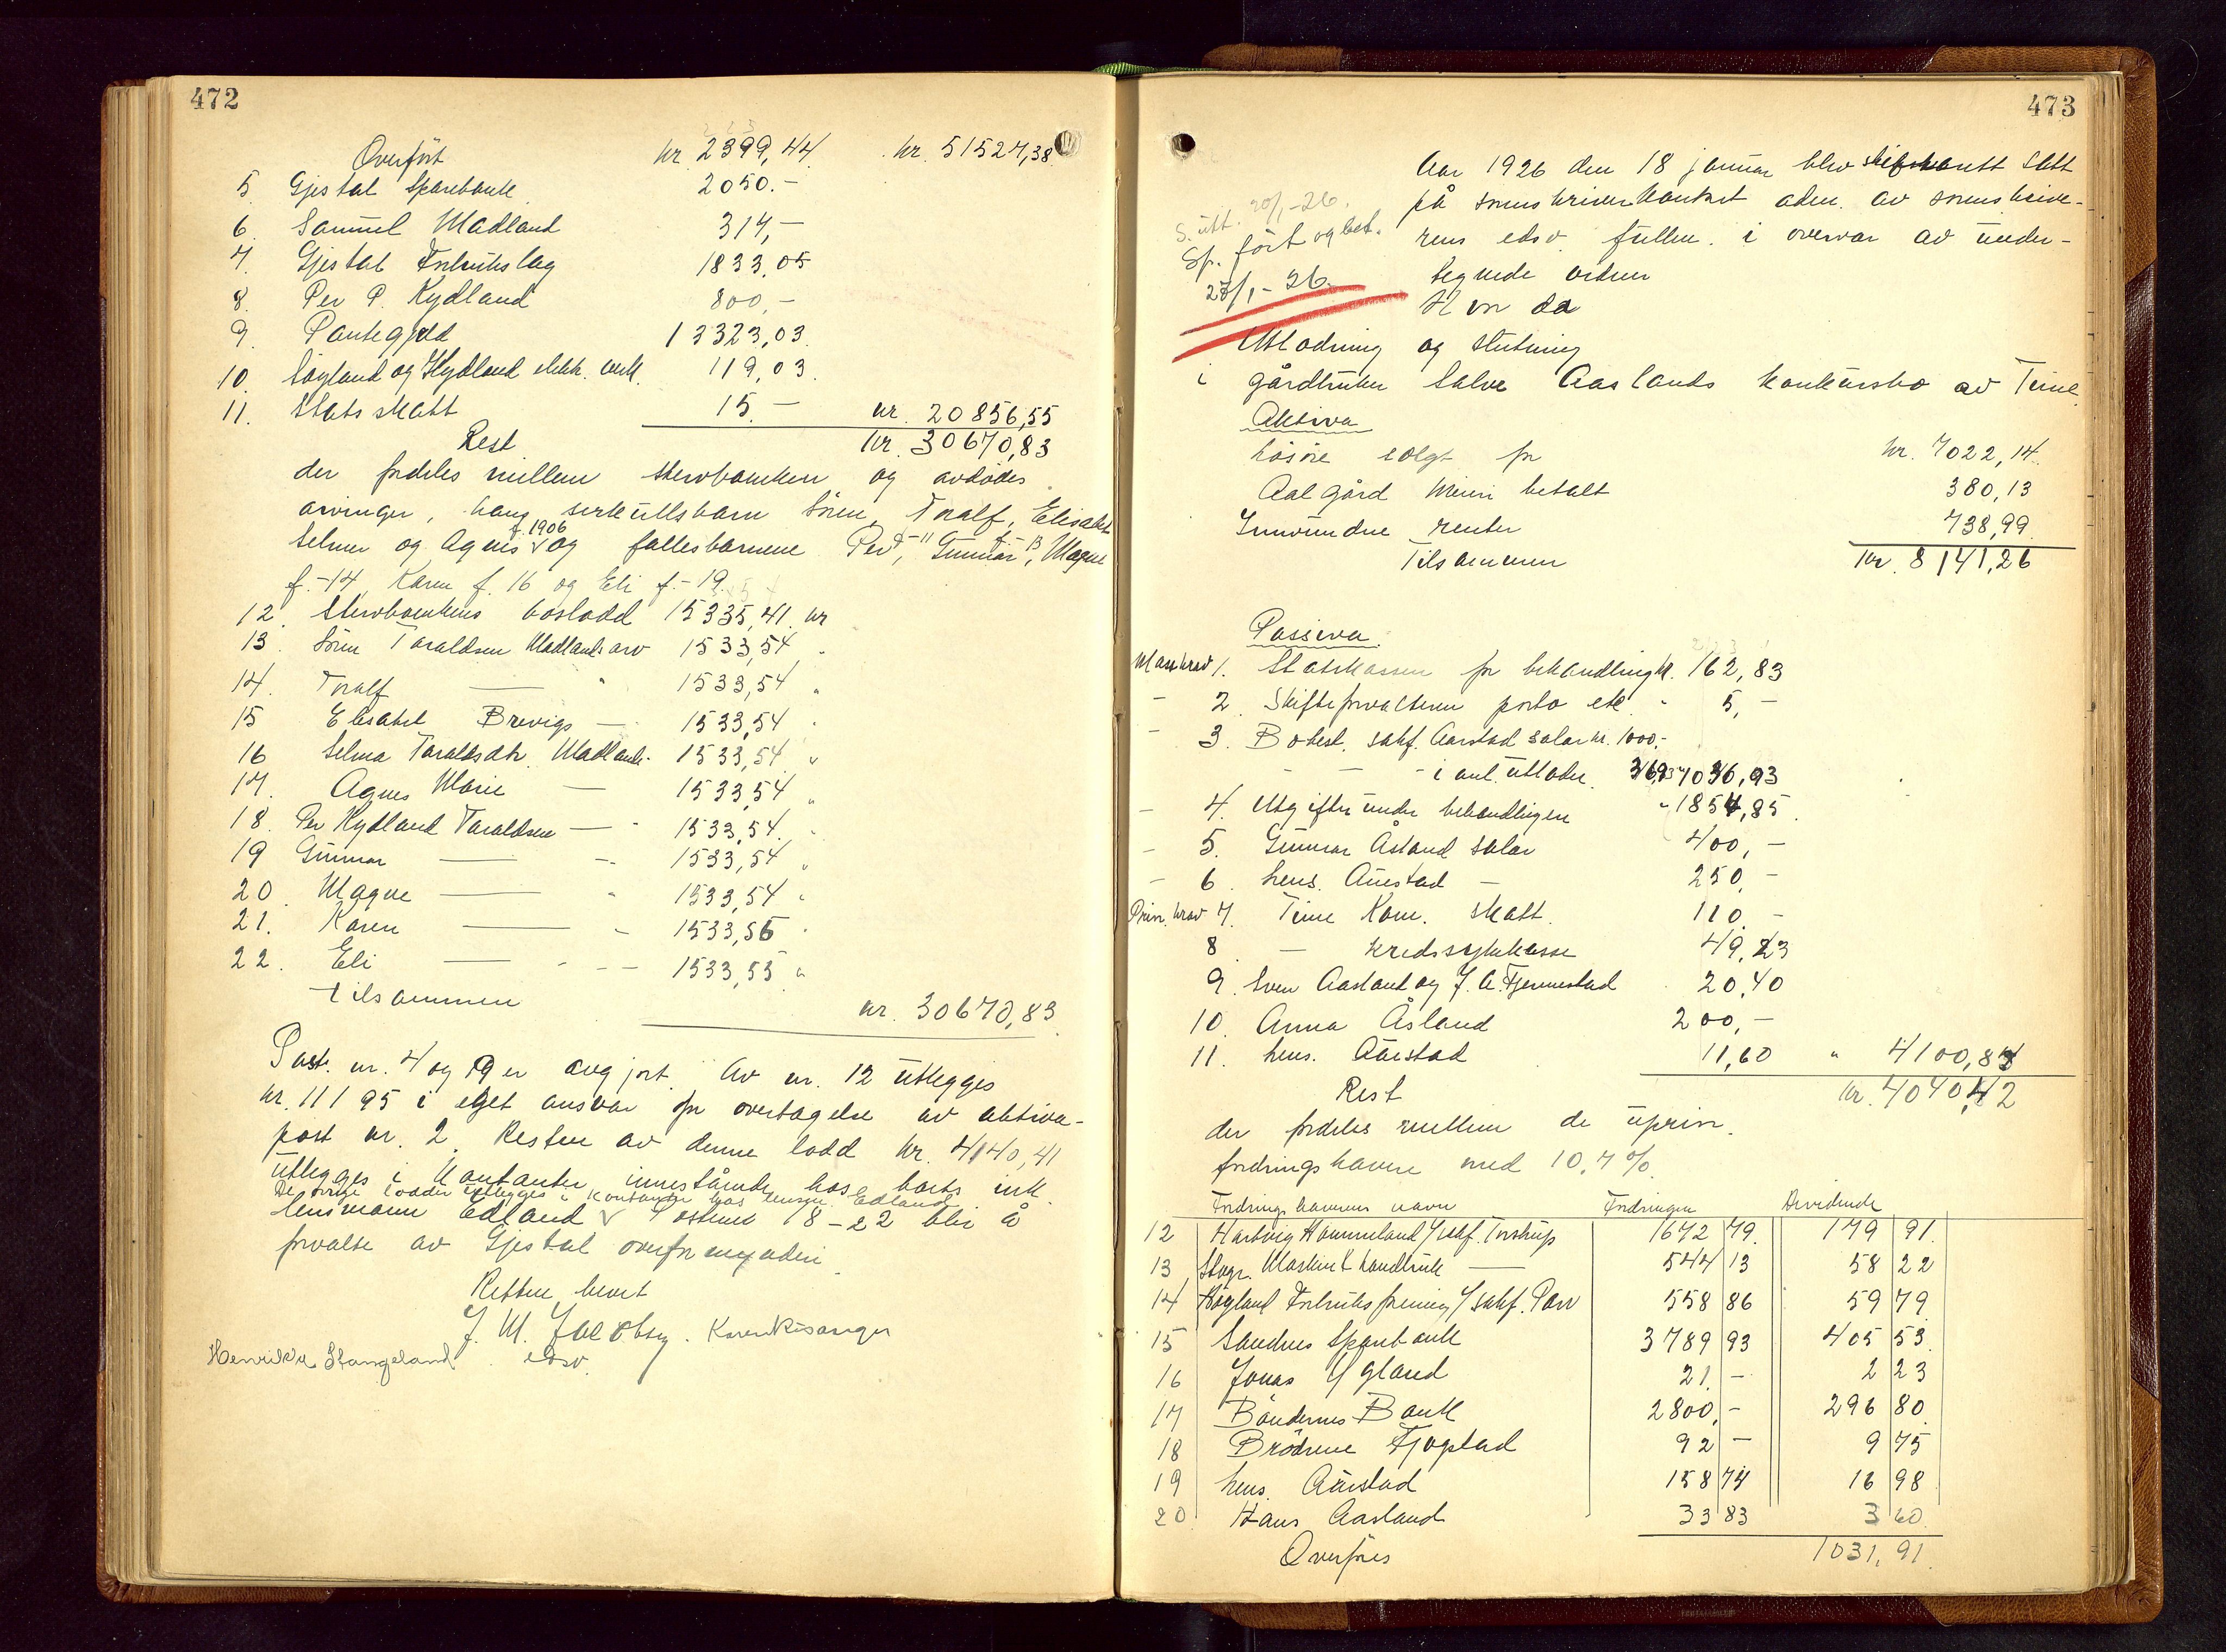 472
Overført kr. 2399,44 kr. 51527,38
5 Gjestal Sparebank 2050.-
6. Samuel Madland 317,-
7. Gjestal Forbrukslag 1833,05
8. Per P. Kydland 800,-
9. Pantegjeld 13323,03
10. Søyland og Kydland elektr. verk. 119,03
11. Statsskatt 15.- kr. 20856,55
Rest kr. 30670,83
der fordeles mellem stervboenken og avdødes
arvinger, hans serkullsbarn Sören, Toralf, Elisabet
Selmer og Agnes f. 1906 og fellesbarnene Per f. -11, Gunnar f. -13, Magne
f.-14, Karen f. 16 og Eli f.-19.
12. Stervboenkens boslodd 15335,41. kr
13. Sören Taraldsen Madlands arv 1533,54 "
14. Toralf — " 1533,54 "
15 Elisabet Brevigs — 1533,54 "
16 Selma Taraldsdtr. Madlands - 1533,54 "
17. Agnes Marie — 1533,54 "
18. Per Kydland Taraldsen — - 1533,54. "
19 Gunnar — - 1533,54 "
20. Magne — " 1533,54 "
21. Karen — - 1533,55 "
22. Eli — - - 1533,55 "
tilsammen kr. 30670,83
Post. nr. 4 og 9 er avgjort. Av nr. 12 utlegges
kr. 11195 i eget ansvar for overtagelse av aktiva-
post nr. 2. Resten av denne lodd kr. 4140,41
utlegges i kontanter innestående hos boets ink.
De övrige lodder utlegges i kontanter hos lensm. Edland
lensmann Edland v Postene 18-22 blir å
forvalte av Gjestal overformynderi.
Retten hevet
J. M. Jacobsen. Karen Kisanger
Henrikk Stangeland edsv.
473
S. utt. 20/1-26.
Sp. ført og bet.
23/1-26.
Aar 1926 den 18 januar blev skifterett satt
på sorenskriverkontoret aden. av sorenskrive-
rens edsv. fullm. i overvær av under-
tegnede vidner
Hvor da
Utlodning og slutning
i gårdbruker Salve Aaslands konkursbo av Time
Aktiva
Lösöre solgt for kr. 7022,14
Aalgård Meieri betalt 380,13
Innvundne renter 738,99
Tilsammen kr. 8141,26
Passiva.
Massekrav 1. Statskassen for behandling kr. 162,83
- 2. Skifteforvalteren porto etc. " 5,-
- 3. Bobest. sakf. Aarstad salær kr. 1000,-
- - - i ant. utlader. 36,93 1036,93
- 4. Utgifter under behandlingen " 1854,85
- 5. Gunnar Åsland salær 400,-
- 6. Lens. Auestad - 250,-
Priv. krav 7. Time Kom. skatt. 110.-
8 - kredssykekasse 49,23
9. Sven Aasland og J. A. Fjermestad 20,40
10. Anna Åsland 200,-
11. Lens. Auestad 11,60 " 4100,84
Rest kr. 4040,42
der fordeles mellem de upriv.
fordringshavere med 10,7%.
Fordringshaverens navn Fordringen Dividende
12 Hartvig Hommeland v/ sakf. Torstrup 1672 79. 179 91.
13 Stvgr. Maskin & handtruk — 544 13 58 22
14 Høyland Forbruksforening v/ sakf. Parr 558 86 59 79
15 Sandnes Sparebank 3789 93 405 53
16 Jonas Ygland 21. - 2 23
17 Böndernes Bank 2800,- 296 80
18 Brödrene Fjogstad 92 - 9 75
19 Lens. Auestad 158 74 16 98
20 Hans Aasland 33 83 3 60
Overføres 1031,91.